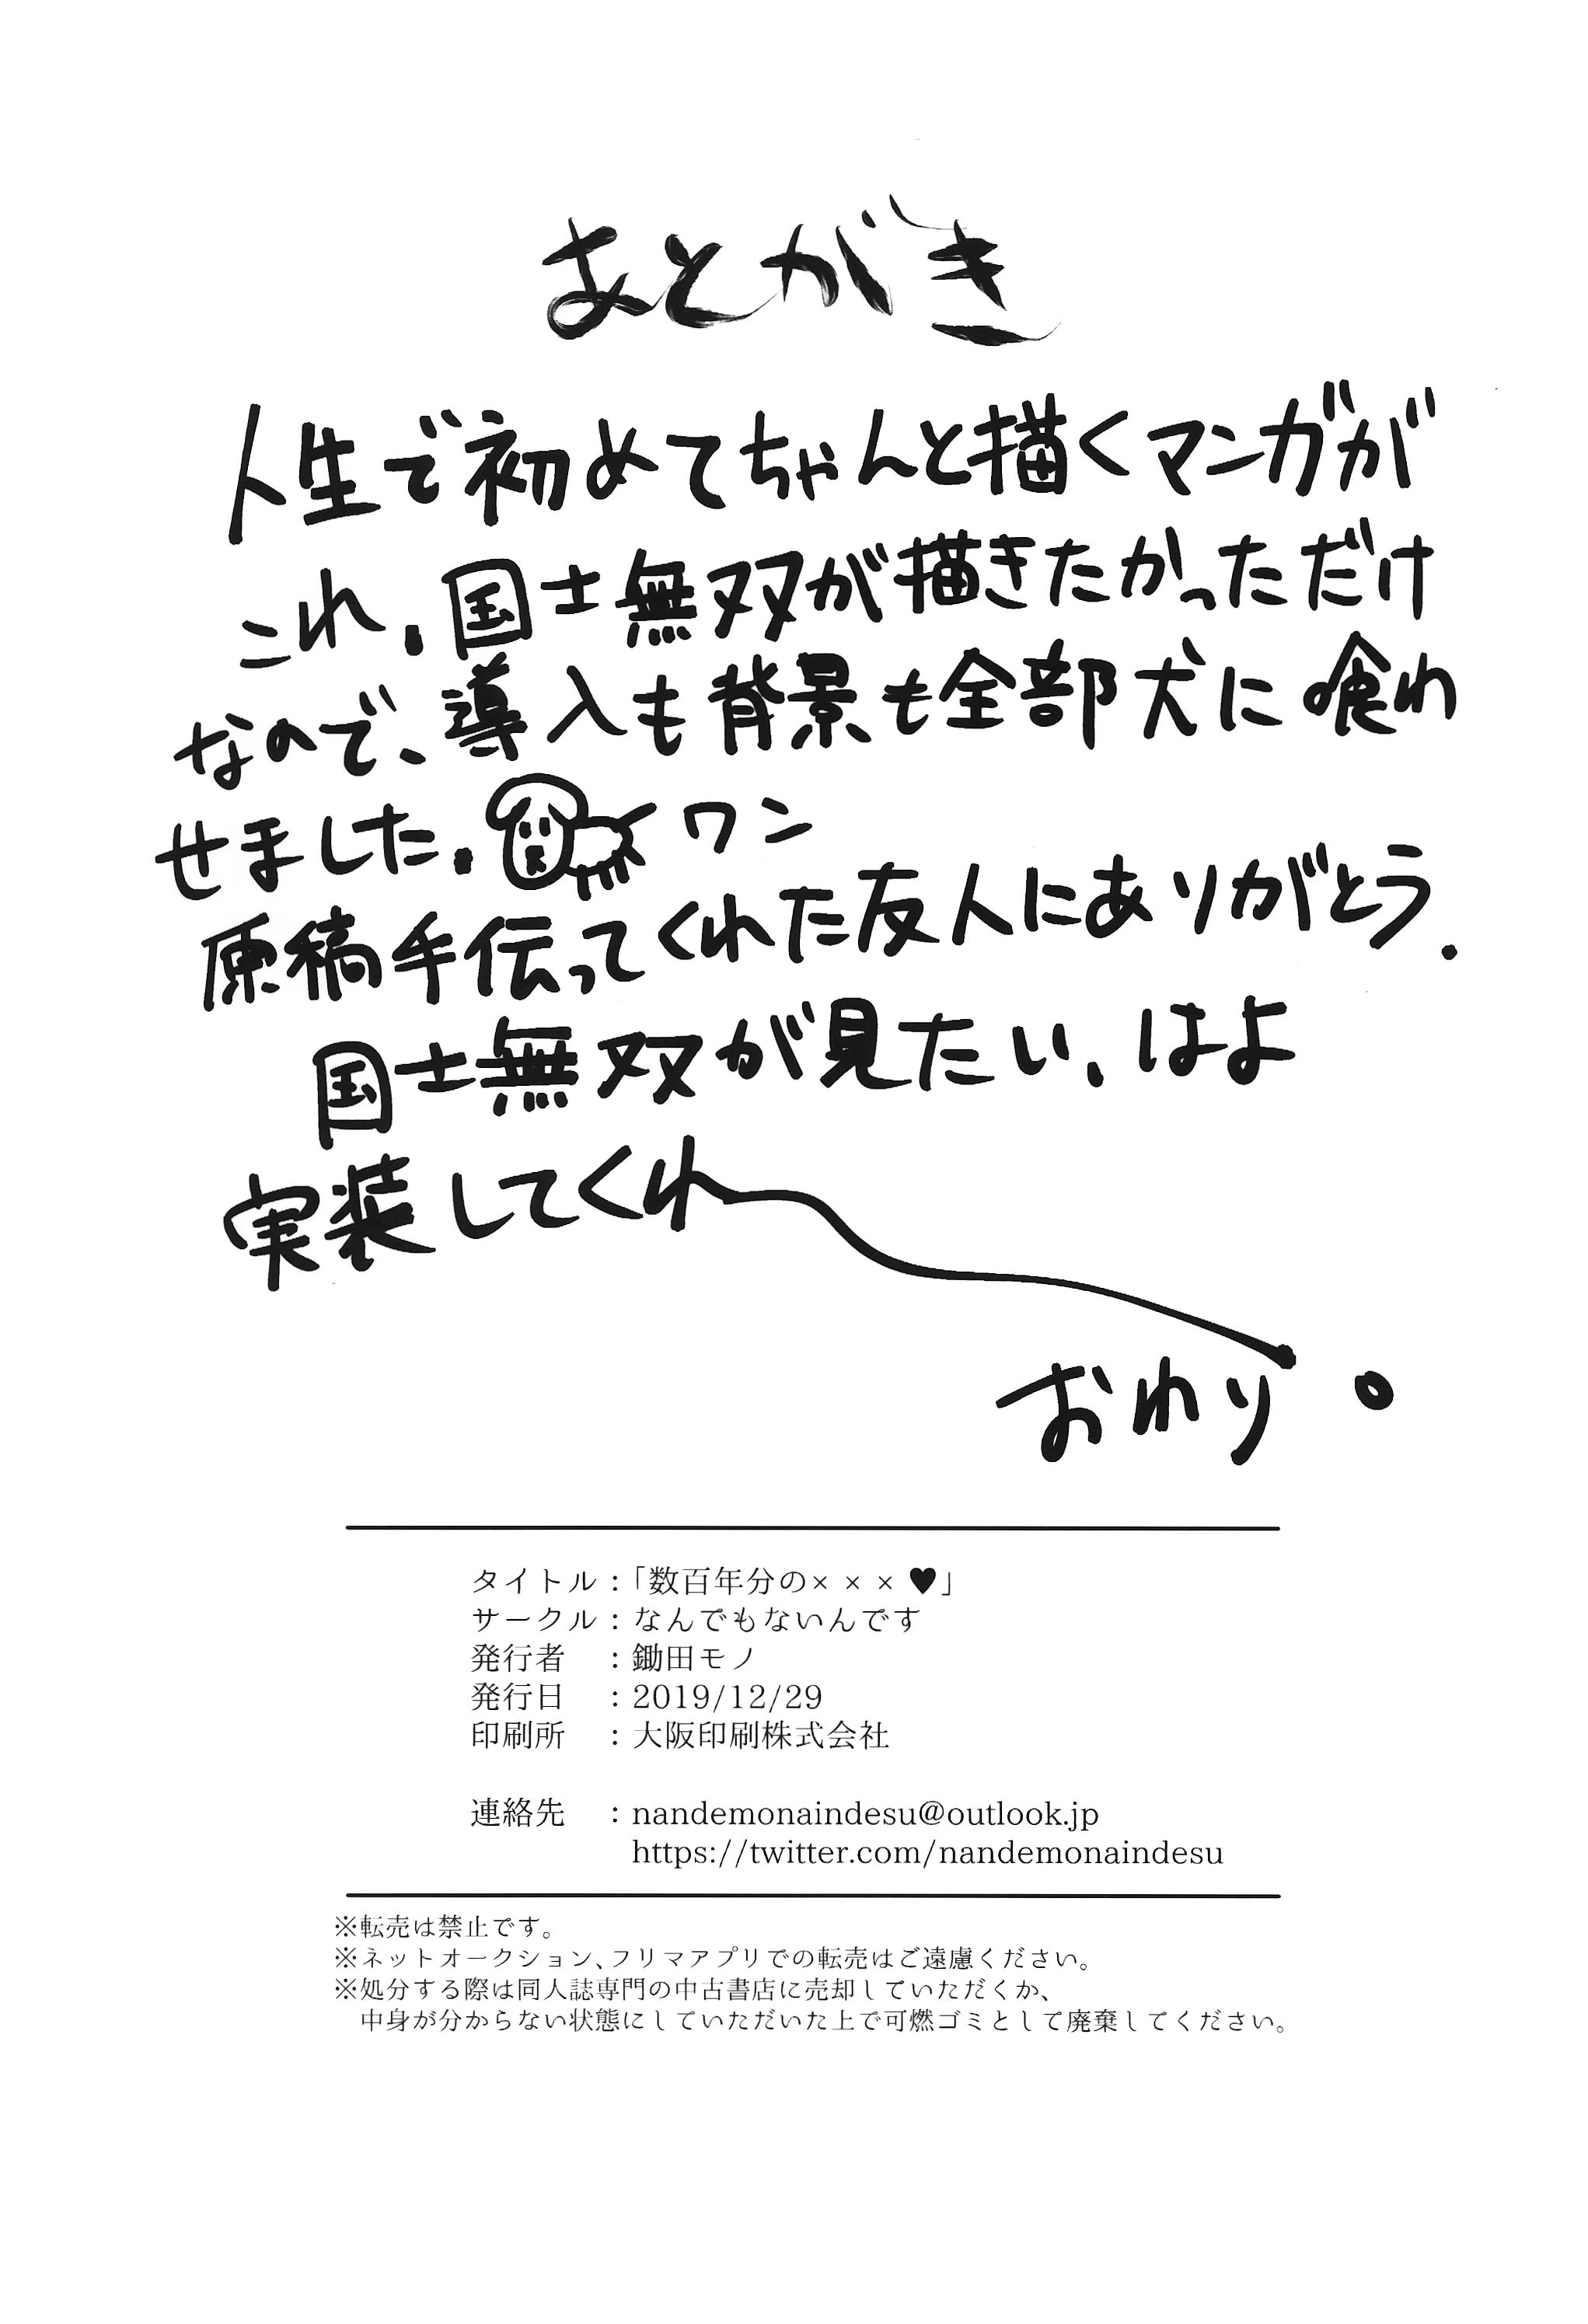 あとがき
人生で初めてちゃんと描くマンガが
これ.国士無双が描きたかっただけ
なので、導入も背景も全部犬に喰わ
せました. ワン
原稿手伝ってくれた友人にありがとう.
国士無双が見たい、はよ
実装してくれ
おわり。
タイトル:「数百年分の×××♥」
サークル:なんでもないんです
発行者 :鋤田モノ
発行日 :2019/12/29
印刷所 :大阪印刷株式会社
連絡先 :nandemonaindesu@outlook.jp
https://twitter.com/nandemonaindesu
※転売は禁止です。
※ネットオークション、フリマアプリでの転売はご遠慮ください。
※処分する際は同人誌専門の中古書店に売却していただくか、
中身が分からない状態にしていただいた上で可燃ゴミとして廃棄してください。